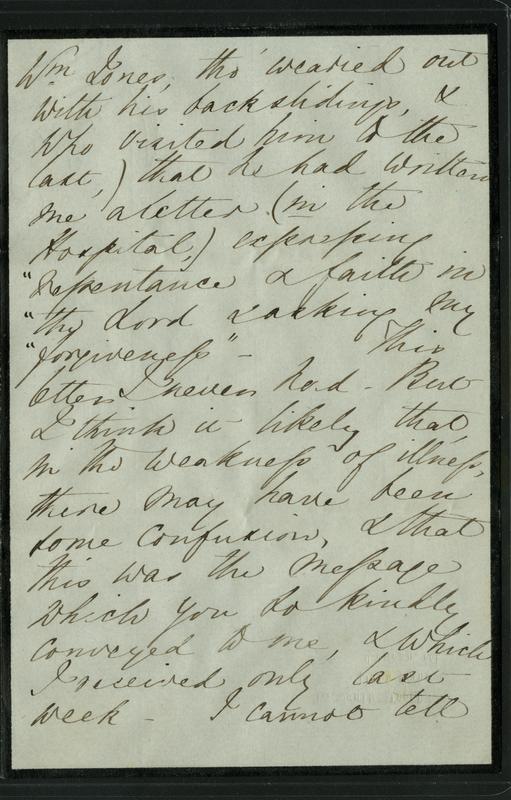 Wm Jones, tho' wearied out
with his backslidings, &
who visited him to the
last,) that he had written
me a letter (in the
Hospital,) expressing
"repentance & faith in
"the Lord & asking my
"forgiveness" - This
letter I never had - But
I think it likely that,
in the weakness of illness,
there may have been
some confusion, & that
this was the message
which you so kindly
conveyed to me, & which
I received only last
week - I cannot tell